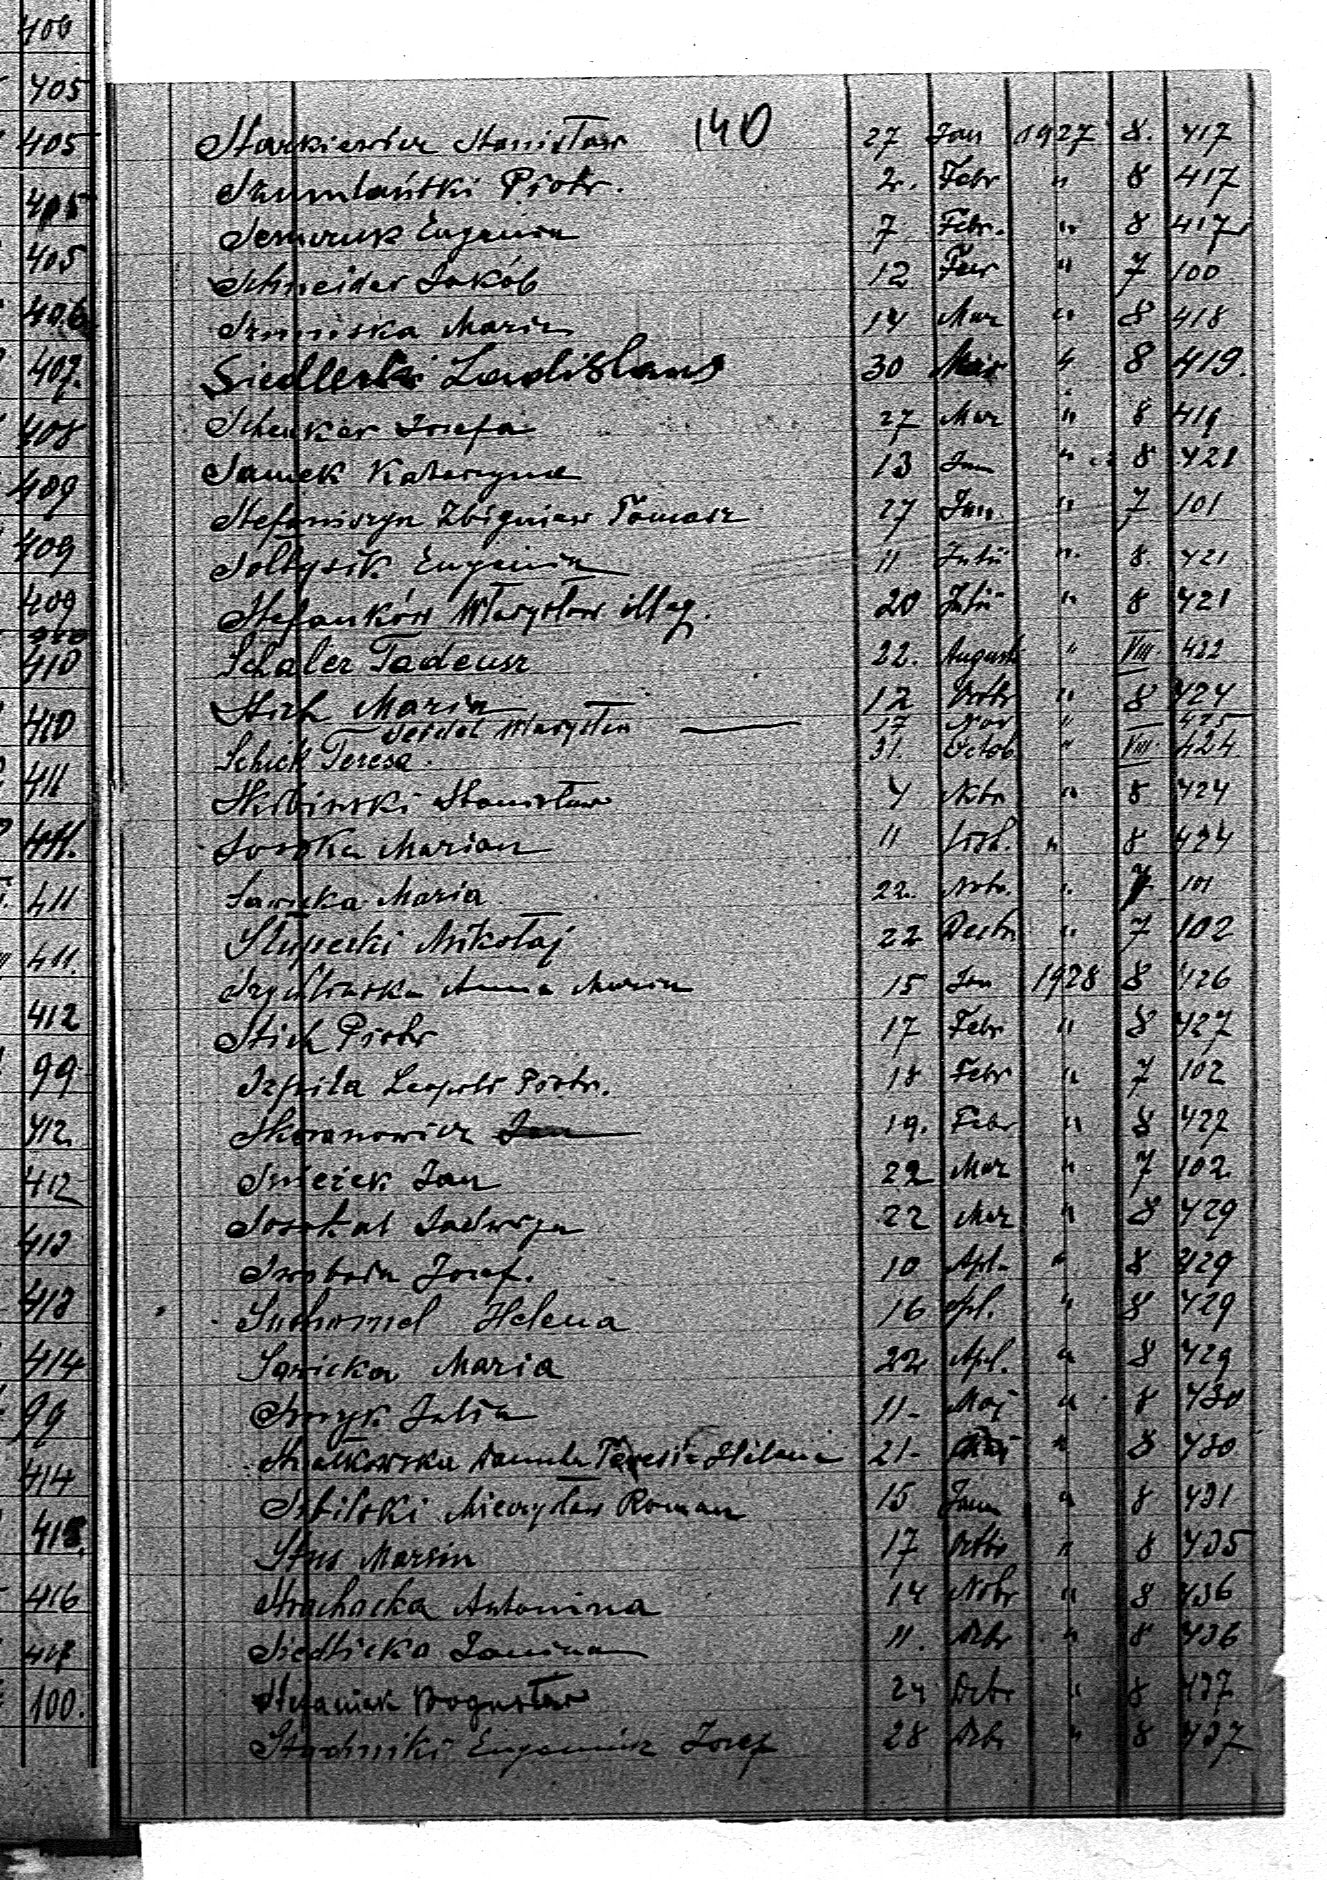 400
405
405
405
405
406
407.
408
409
409
409
410
410
411
411.
411
411.
412
99
412
412
413
413
414
99
414
415
416
417
100.
140
Starkiewicz Stanisław 27 Jan 1927 8. 417
Szumlański Piotr. 2. Febr " 8 417
Semczuk Eugenia 7 Febr. " 8 417
Schneider Jakób 12 Febr " 7 100
Maria 14 Mar " 8 418
Siedlecki Ladislaus 30 Mar " 8 419.
Schenker Josefa 27 Mar " 8 419
Samek Katarzyna 13 Jun " 8 421
Stefaniszyn Zbigniew Tomasz 27 Jun. " 7 101
Sołtysik Eugenia 11 Julii " 8. 421
Stefanków Władysław illeg. 20 Julii " 8 421
Schaler Tadeusz 22. August " VIII 422
Stich Maria 12 Octbr " 8 424
Seidel Władysław 17 Nov " 425
Schick Teresa. 31. Octob " VIII 424
Skibiński Stanisław 4 Nbr " 8 424
Soroka Marian 11 " 8 424
Sawicka Maria 22. Nvbr. " 7 101
Słupecki Mikołaj 22 Decbr " 7 102
Anna Maria 15 Jan 1928 8 426
Stich Piotr 17 Febr " 8 427
Szpila Leopold Piotr. 18 Febr " 7 102
Skoranowicz Jan 19. Febr " 8 427
Śnieżek Jan 22 Mar " 7 102
Sosokal Jadwiga 22 Mar " 8 429
Swoboda Josef. 10 Apl. " 8 429
Suchomel Helena 16 Apl. " 8 429
Sawicka Maria 22 Apl. " 8 429
Smyk Julia 11 - Maj " 8 430
Skałkowska Danuta Teresia Helena 21 - Maj " 8 430
Sobilski Mieczysław Roman 15 Junii " 8 431
Stus Marsin 17 Octbr " 8 435
Strachocka Antonina 14 Nobr " 8 436
Siedlicka Janina 11. Dcbr " 8 436
Stefaniuk Bogusław 24 Dcbr " 8 437
Stachnicki Eugeniusz Josef 28 Dcbr " 8 437